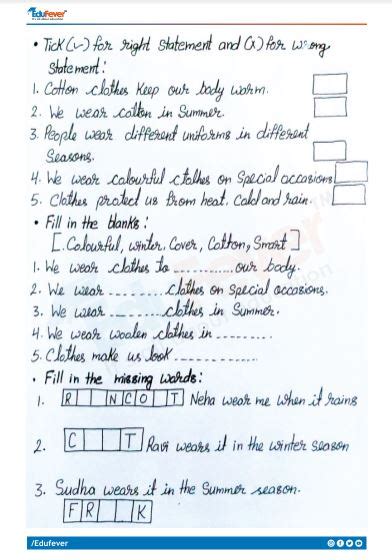 EduFever
• Tick (✓) for right statement and (x) for wrong
Statement:
1. Cotton clothes keep our body warm.
2. We wear cotton in Summer.
3. People wear different uniforms in different
Seasons.
4. We wear colourful clothes on Special occasions
5. Clothes protect us from heat, Cold and rain.
• Fill in the blanks:
[. Colourful, winter, Cover, Cotton, Smart ]
1. We wear clothes to ........... our body.
2. We wear .......... clothes on Special occasions.
3. We wear .......... clothes in Summer.
4. We wear woolen clothes in ..........
5. Clothes make us look ..............
• Fill in the missing words:
1. R N C O T Neha wear me when it rains
2. C T Ravi wears it in the winter season
3. Sudha wears it in the Summer season.
F R K
/Edufever